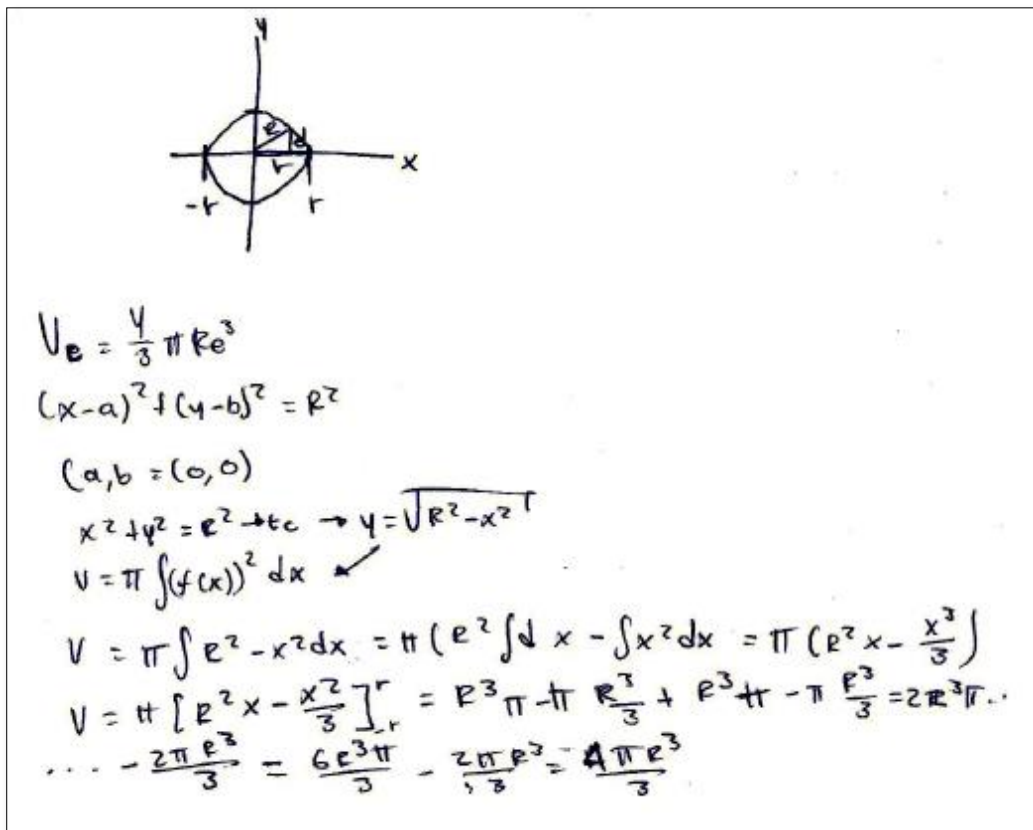 y
R d
r x
-r r
V_e = 4/3 π Re³
(x-a)² + (y-b)² = R²
(a,b = (0,0)
x² + y² = R² → tc → y = √(R² - x²)
V = π ∫(f(x))² dx
V = π ∫ R² - x² dx = π (R² ∫d x - ∫x² dx = π (R² x - x³/3)
V = π [R² x - x²/3]ʳ₋ᵣ = R³ π - π R³/3 + R³ π - π R³/3 = 2R³ π ..
.... - 2πR³/3 = 6R³π/3 - 2πR³/3 = 4πR³/3